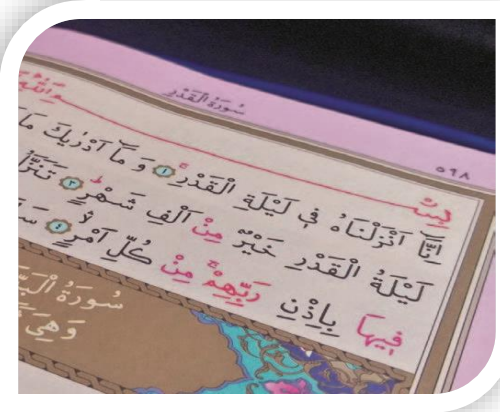 ٥٩٨ سُورَةُ الْقَدْرِ
بِسْمِ اللّٰهِ
اِنَّٓا اَنْزَلْنَاهُ ف۪ي لَيْلَةِ الْقَدْرِۚ ﴿١﴾ وَمَٓا اَدْرٰيكَ مَا
لَيْلَةُ الْقَدْرِ خَيْرٌ مِنْ اَلْفِ شَهْرٍۜ ﴿٣﴾ تَنَزَّلُ
ف۪يهَا بِاِذْنِ رَبِّهِمْۚ مِنْ كُلِّ اَمْرٍۙ ﴿٤﴾
سُورَةُ
وَهِيَ